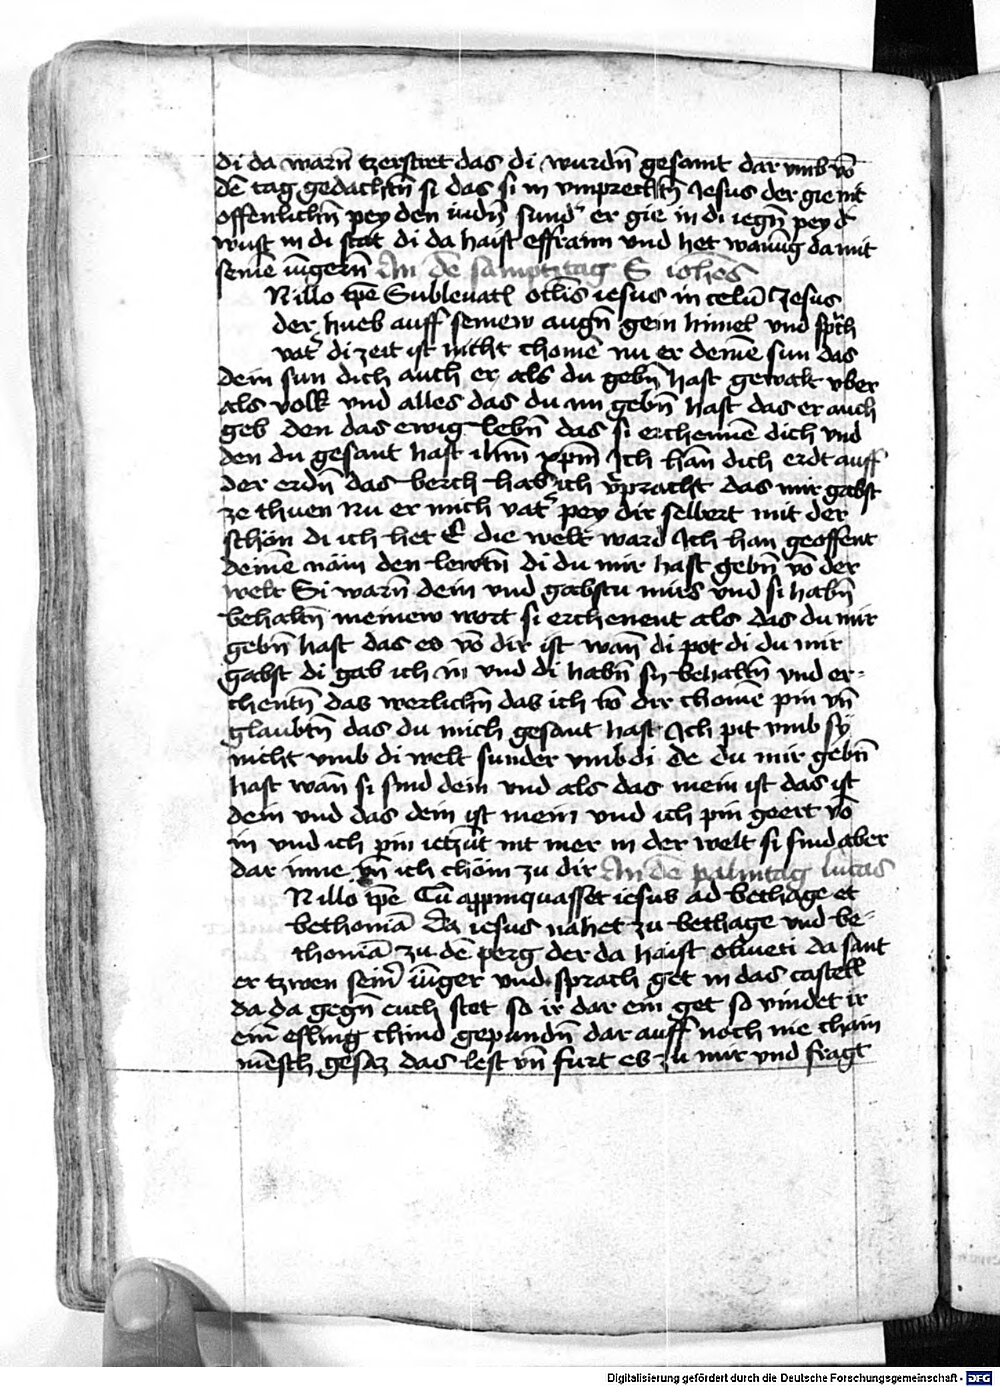 di da warn̄ tzerstret das di wurdn̄ gesamt dar vmb vō
dē tag gedachtn̄ si das si in vmprechtn̄ Jesus der gie nit
offenlichn̄ pey den iudn̄ sund' er gie in di iegn̄ pey d'
wust in di stat di da haist effraim vnd het wanūg da mit
seinē iūgern̄ An dē samptztag S iohēs
N illo tp̄e Subleuatl̄ oclīs iesus in celū Jesus
der hueb auff seinew augn̄ gein himel vnd sp̄ch
vat' di zeit ist nicht chomē nu er deinē sun das
dein sun dich auch er als du gebn̄ hast gewalt vber
als volk vnd alles das du im gebn̄ hast das er auch
geb den das ewig lebn̄ das si erchennē dich vnd
den du gesant hast ihm̄ xpm̄ Ich han dich erdt auff
der erdn̄ das berch hab ich v̄pracht das mir gabst
ze thuen Nu er mich vat' pey dir selbert mit der
schön di ich het E' die welt ward Ich han geoffent
deinē nam den lewtn̄ di du mir hast gebn̄ vō der
welt Si warn̄ dein vnd gabstu mirs vnd si habn̄
behaltn̄ meinew wort si erchenent als das du mir
gebn̄ hast das es vō dir ist wan̄ di pot di du mir
gabst di gab ich in vnd di habn̄ sy behaltn̄ vnd er-
chentn̄ das werlichn̄ das ich vō dir chomē pin vn̄
glaubtn̄ das du mich gesant hast Ich pit vmb sy
nicht vmb di welt sunder vmb di de du mir gebn̄
hast wan̄ si sind dein vnd als das mein ist das ist
dein vnd das dein ist mein vnd ich pin geert vō
in vnd ich pin ietzūt nit mer in der welt si sind aber
dar inne vn̄ ich chöm zu dir An dē palmtag lucas
N illo tp̄e Cū appinquasset iesus ad bethage et
bethoniā Da iesus nahet zu bethage vnd be-
thoniā zu dē perg der da haist oliueti da sant
er tzwen sein' iūger vnd sprach get in das castell
da da gegn̄ euch stet so ir dar ein get so vindet ir
ein' esling chind gepundn̄ dar auff noch nie chain
mēsch gesaz das lest vn̄ furt es zu mir vnd fragt
Digitalisierung gefördert durch die Deutsche Forschungsgemeinschaft - DFG